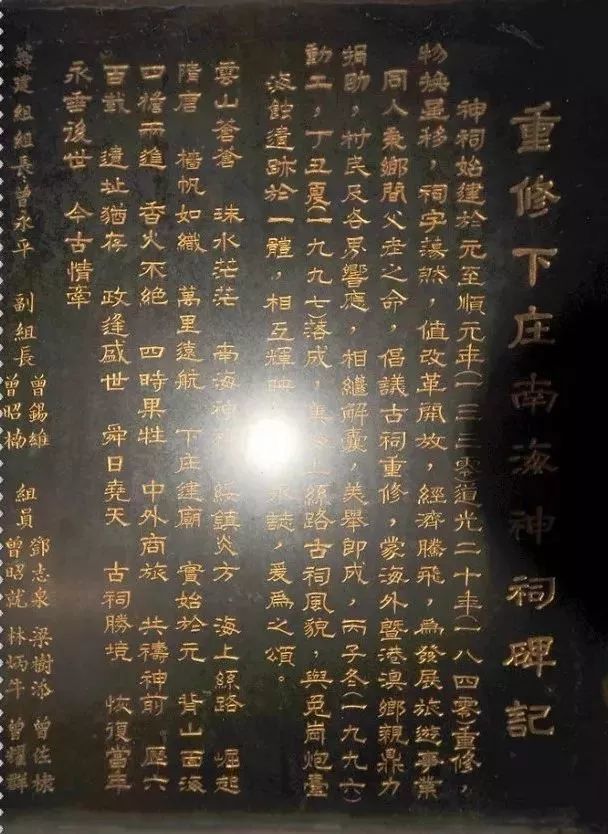 重修下庄南海神祠碑記
神祠始建於元至順元年(一三三零)道光二十年(一八四零)重修,
物換星移,祠宇蕩然,值改革開放,經濟騰飛,為發展旅遊事業
同人秉鄉間父老之命,倡議古祠重修,蒙海外暨港澳鄉親鼎力
捐助,村民及各界響應,相繼解囊,美舉即成,丙子冬(一九九六)
動工,丁丑夏(一九九七)落成,集 上絲路古祠風貌,與免崗炮臺
海蝕遺跡於一體,相互輝映 永誌,爰為之頌。
雲山蒼蒼 珠水茫茫 南海神 綏鎮炎方 海上絲路 崛起
隋唐 楊帆如織 萬里遠航 下庄建廟 實始於元 背山面海
四檐兩進 香火不絕 四時果牲 中外商旅 共禱神前 歷六
百載 遺址猶存 政逢盛世 舜日堯天 古祠勝境 恢復當年
永垂後世 今古情牽
籌建組組長曾永平 副組長 曾錫維 曾昭楠 組員 鄧志泉 梁樹添 曾佐棣 曾昭 林炳牛 曾耀群